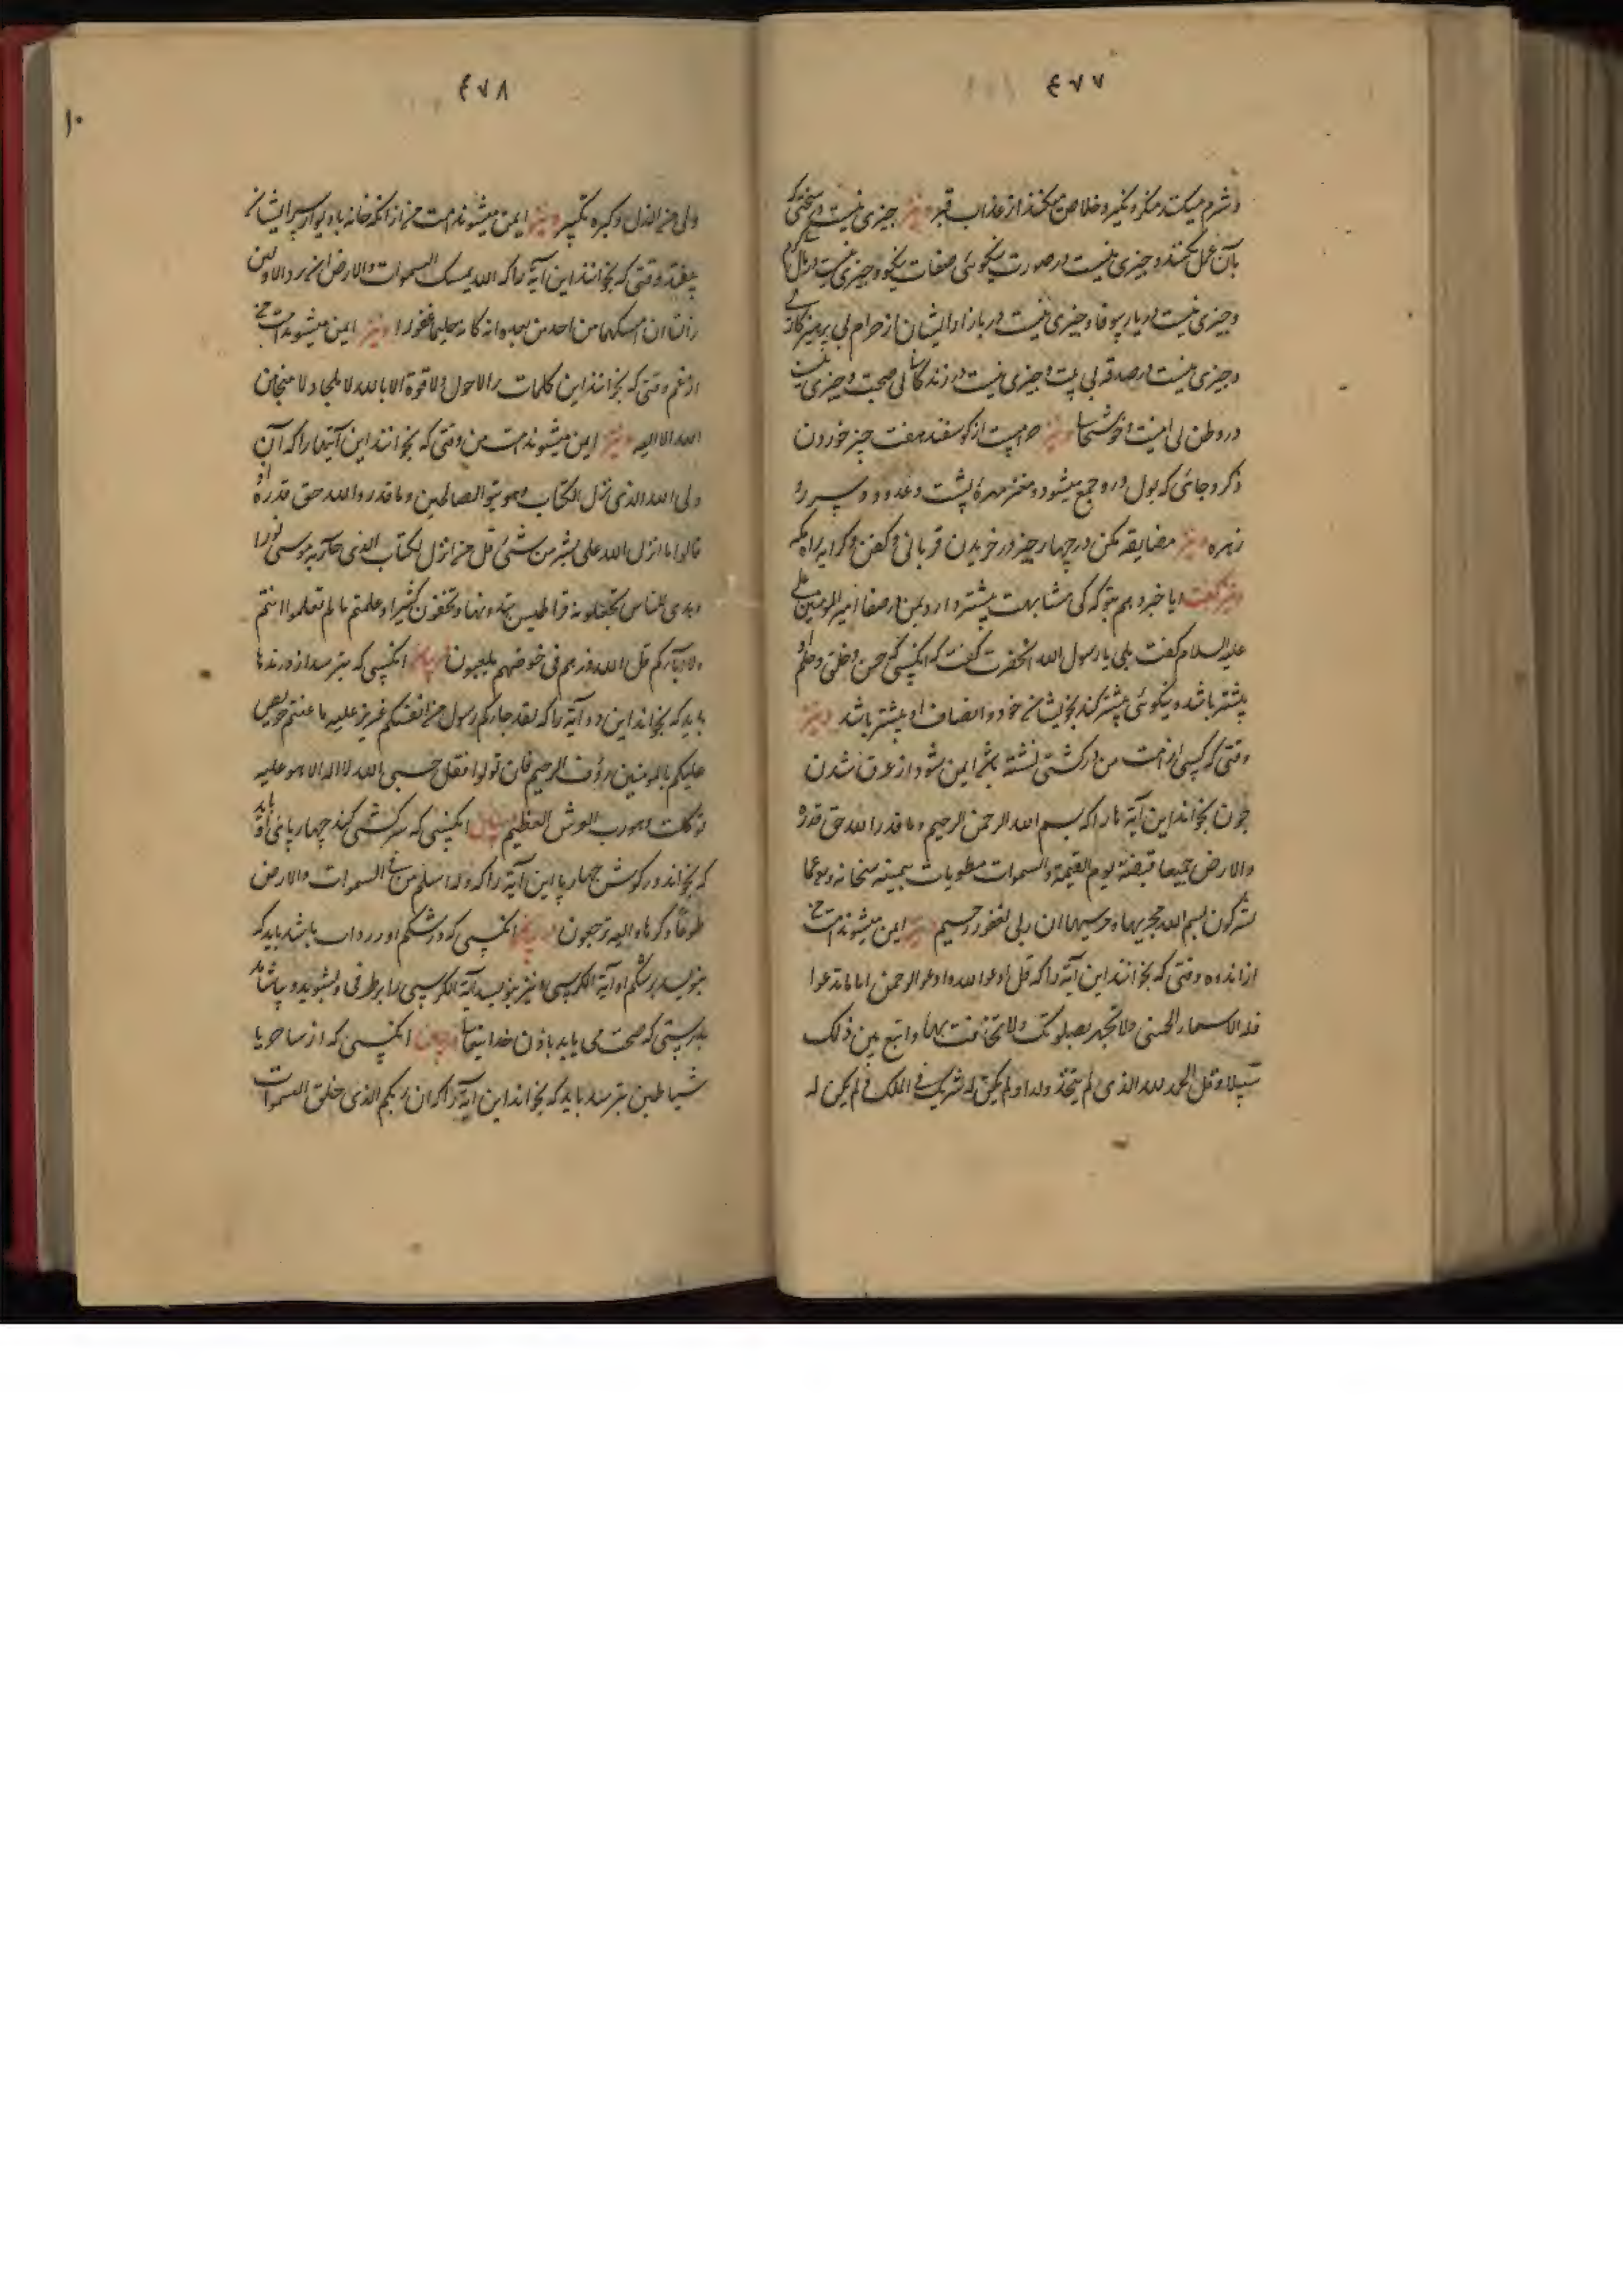 ٤٧٧
و شرم میکند منکر و نکیر و خلاص میکند از عذاب قبر و نیز چیزی نیست در سخنی که
بآن عمل نکنند و چیزی نیست در صورت نیکو بی صفات نیکو و چیزی نیست در مال بی کرم
و چیزی نیست در یار بیوفا و چیزی نیست در باز ایشان از حرام بی پرهیزکاری
و چیزی نیست در صدقه بی نیت و چیزی نیست در زندگانی بی صحت و چیزی نیست
در وطن بی امنیت و خوشحالی و نیز حرامست از گوسفند هفت چیز خوردن
ذکر و جائی که بول درو جمع میشود و مغز مهرهٔ پشت و غدود و سپرز و
زهره و نیز مضایقه مکن در چهار چیز در خریدن قربانی و کفن و کرایه راه مکه
و نیز گفت ایا خبر دهم بتو که کی مشابهت بیشتر دارد بمن در صفا امیر المومنین علی
علیه السلام گفت بلی یا رسول الله انحضرت گفت که انکسی که حسن و خلق و حلم او
بیشتر باشد و نیکوئی بیشتر کند بخویشان خود و انصاف او بیشتر باشد و نیز
وقتی که کسی از امت من در کشتی نشسته باشد ایمن شود از غرق شدن
چون بخواند این آیة ها را که بسم الله الرحمن الرحیم و ما قدر الله حق قدره
والارض جمیعا قبضته یوم القیمة والسموات مطویات بیمینه سبحانه وتعالی عما
یشرکون بسم الله مجریها ومرسیها ان ربی لغفور رحیم و نیز ایمن میشوند امت من
از اندوه وقتی که بخوانند این آیة را که قل ادعوا الله او ادعوا الرحمن ایاما تدعوا
فله الاسماء الحسنی ولا تجهر بصلوتک ولا تخافت بها وابتغ بین ذلک
سبیلا وقل الحمد لله الذی لم یتخذ ولدا ولم یکن له شریک فی الملک ولم یکن له
٤٧٨
١٠
ولی من الذل وکبره تکبیر و نیز ایمن میشوند امت من از انکه خانه با دیوار بر سر ایشان
بیفتد وقتی که بخوانند این آیة را که الله یمسک السموات والارض ان تزولا ولئن
زالتا ان امسکهما من احد من بعده انه کان حلیما غفورا و نیز ایمن میشوند امت من
از غم وقتی که بخوانند این کلمات را لاحول ولا قوة الا بالله لا ملجا ولا منجا من
الله الا الیه و نیز ایمن میشوند امت من وقتی که بخوانند این آیتها را که ان
ولی الله الذی نزل الکتاب وهو یتولی الصالحین وما قدروا الله حق قدره اذ
قالوا ما انزل الله علی بشر من شیئ قل من انزل الکتاب الذی جاء به موسی نورا
وهدی للناس تجعلونه قراطیس تبدونها وتخفون کثیرا وعلمتم ما لم تعلموا انتم
ولا آباؤکم قل الله ثم ذرهم فی خوضهم یلعبون انکسی که بترسد از درندها
باید که بخواند این دو آیة را که لقد جاءکم رسول من انفسکم عزیز علیه ما عنتم حریص
علیکم بالمومنین رؤف الرحیم فان تولوا فقل حسبی الله لا اله الا هو علیه
توکلت وهو رب العرش العظیم انکسی که سرکشی کند چهارپائی او باید
که بخواند در گوش چهارپا این آیة را که وله اسلم من فی السموات والارض
طوعا وکرها والیه ترجعون انکسی که در شکم او زرداب باشد باید که
بنویسد بر شکم او آیة الکرسی و نیز بنویسد آیة الکرسی را بر ظرفی و بشوید و بیاشامد
بدرستی که صحت می یابد باذن خدایتعالی انکسی که از ساحر یا
شیاطین بترسد باید که بخواند این آیة را که ان ربکم الذی خلق السموات